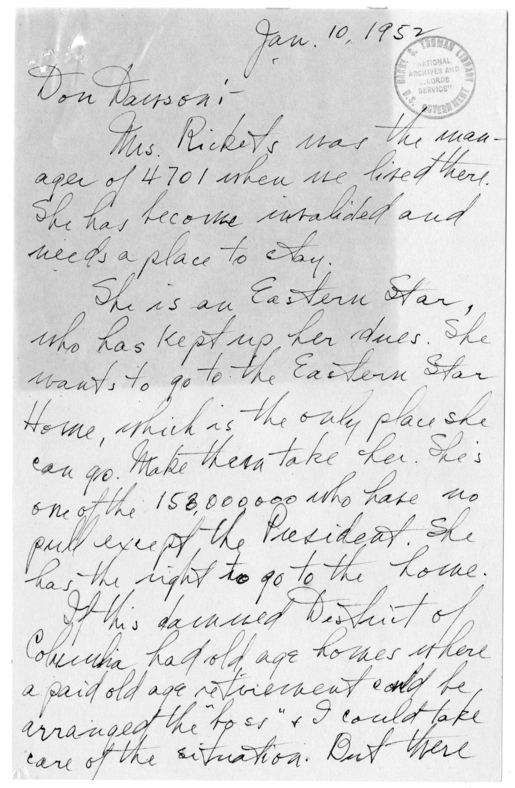 Jan. 10, 1952
HARRY S. TRUMAN LIBRARY
"NATIONAL
ARCHIVES AND
RECORDS
SERVICE"
U.S. GOVERNMENT
Don Dawson:-
Mrs. Rickets was the man-
ager of 4701 when we lived there.
She has become invalided and
needs a place to stay.
She is an Eastern Star,
who has kept up her dues. She
wants to go to the Eastern Star
Home, which is the only place she
can go. Make them take her. She's
one of the 158,000000 who have no
pull except the President. She
has the right to go to the home.
If this damned District of
Columbia had old age homes where
a paid old age retirement could be
arranged the "boss" & I could take
care of the situation. But there